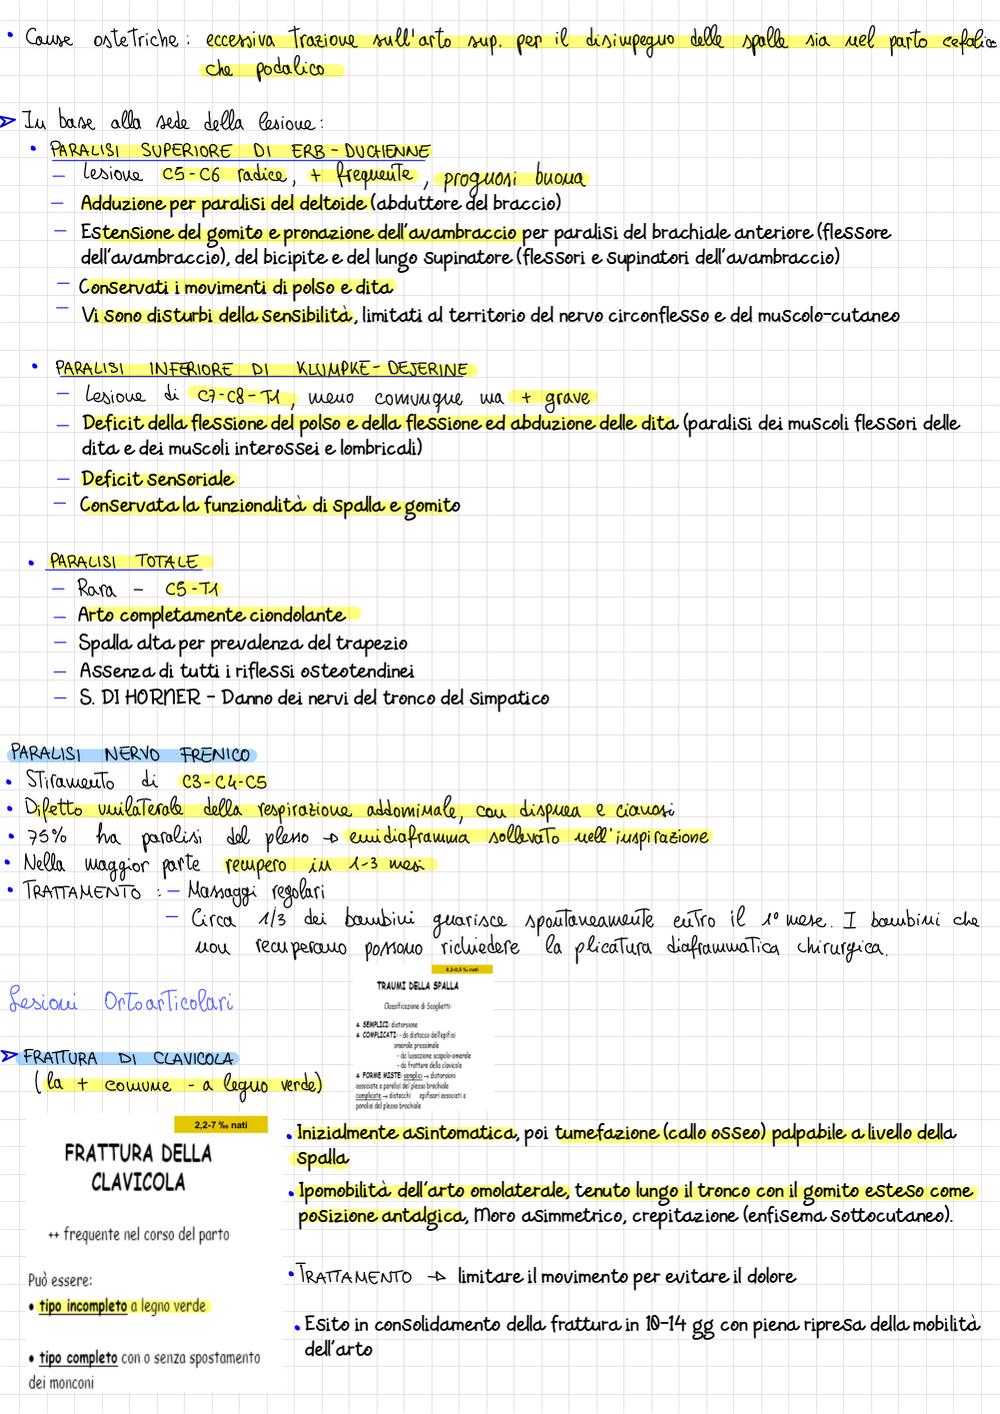 • Cause ostetriche: eccessiva trazione sull'arto sup. per il disimpegno delle spalle sia nel parto cefalico
che podalico
➤ In base alla sede della lesione:
• PARALISI SUPERIORE DI ERB-DUCHENNE
— Lesione C5-C6 radice, + frequente, prognosi buona
— Adduzione per paralisi del deltoide (abduttore del braccio)
— Estensione del gomito e pronazione dell'avambraccio per paralisi del brachiale anteriore (flessore
dell'avambraccio), del bicipite e del lungo supinatore (flessori e supinatori dell'avambraccio)
— Conservati i movimenti di polso e dita
— Vi sono disturbi della sensibilità, limitati al territorio del nervo circonflesso e del muscolo-cutaneo
• PARALISI INFERIORE DI KLUMPKE-DEJERINE
— Lesione di C7-C8-T1, meno comunque ma + grave
— Deficit della flessione del polso e della flessione ed abduzione delle dita (paralisi dei muscoli flessori delle
dita e dei muscoli interossei e lombricali)
— Deficit sensoriale
— Conservata la funzionalità di spalla e gomito
• PARALISI TOTALE
— Rara - C5-T1
— Arto completamente ciondolante
— Spalla alta per prevalenza del trapezio
— Assenza di tutti i riflessi osteotendinei
— S. DI HORNER - Danno dei nervi del tronco del simpatico
PARALISI NERVO FRENICO
• Stiramento di C3-C4-C5
• Difetto unilaterale della respirazione addominale, con dispnea e cianosi
• 75% ha paralisi del plesso → emidiaframma sollevato nell'inspirazione
• Nella maggior parte recupero in 1-3 mesi
• TRATTAMENTO: — Massaggi regolari
— Circa 1/3 dei bambini guarisce spontaneamente entro il 1° mese. I bambini che
non recuperano possono richiedere la plicatura diaframmatica chirurgica.
0,2-0,5 ‰ nati
TRAUMI DELLA SPALLA
Classificazione di Scaglietti:
SEMPLICI: distorsione
COMPLICATI: - da distacco dell'epifisi
omerale prossimale
- da lussazione scapolo-omerale
- da frattura della clavicola
FORME MISTE: semplici → distorsioni
associate a paralisi del plesso brachiale
complicate → distacchi epifisari associati a
paralisi del plesso brachiale
Lesioni Ortoarticolari
➤ FRATTURA DI CLAVICOLA
(la + comune - a legno verde)
2,2-7 ‰ nati
FRATTURA DELLA
CLAVICOLA
++ frequente nel corso del parto
Può essere:
• tipo incompleto a legno verde
• tipo completo con o senza spostamento
dei monconi
• Inizialmente asintomatica, poi tumefazione (callo osseo) palpabile a livello della
spalla
• Ipomobilità dell'arto omolaterale, tenuto lungo il tronco con il gomito esteso come
posizione antalgica, Moro asimmetrico, crepitazione (enfisema sottocutaneo).
• TRATTAMENTO → limitare il movimento per evitare il dolore
• Esito in consolidamento della frattura in 10-14 gg con piena ripresa della mobilità
dell'arto